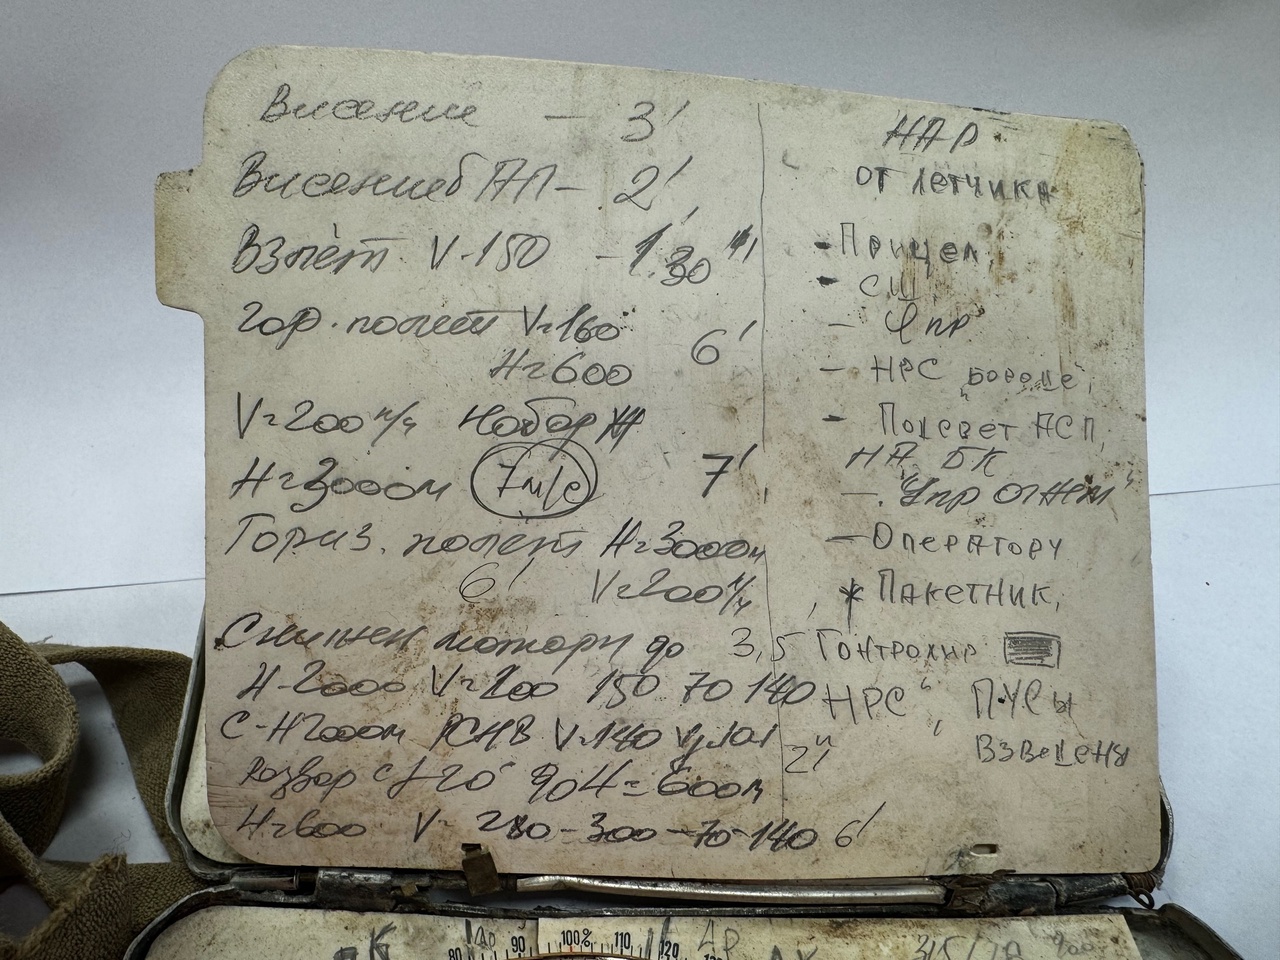 Висение - 3'
Висение ПП - 2'
Взлёт V-150 - 1.30"
Гор. полет V=160
H=600 6'
V=200 к/ч набор
H=3000м 7м/с 7'
Гориз. полёт H=3000м
6' V=200к/ч
Снижен до 3,5
H-2000 V=200 150 70 140
С-H2000м РСНВ V-140
2'
Развор с 20° до H=600м
H=600 V= -300-70-140 6'
НАР
от лётчика
- Прицел,
- СШ,
- Упр
- НРС
- Подсвет АСП,
на БК
- "Упр огнём"
- Оператору
* Пакетник,
НРС", ПУСы
взведены
80 90 100% 110 120
АР